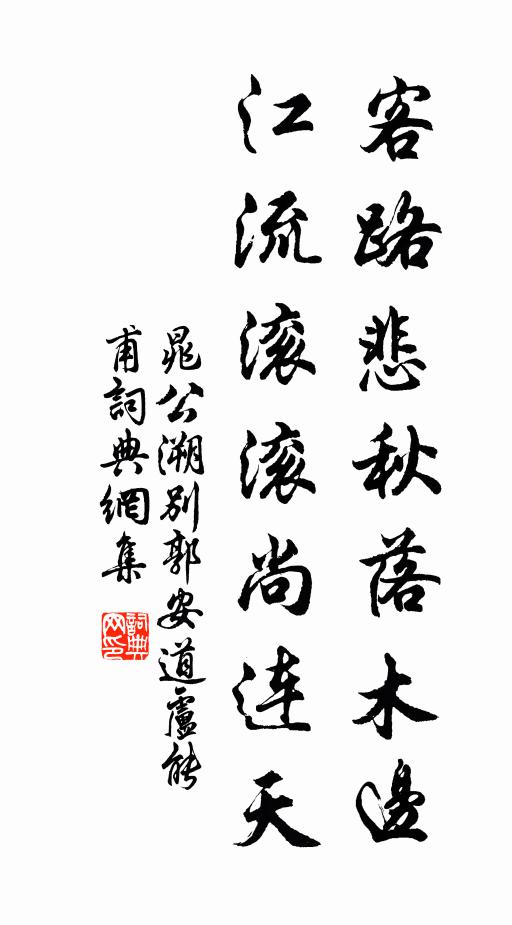 客路悲秋落木邊
江流滚滚尚连天
晁公溯别郭安道盧能
甫詞典網集
詞典
网印